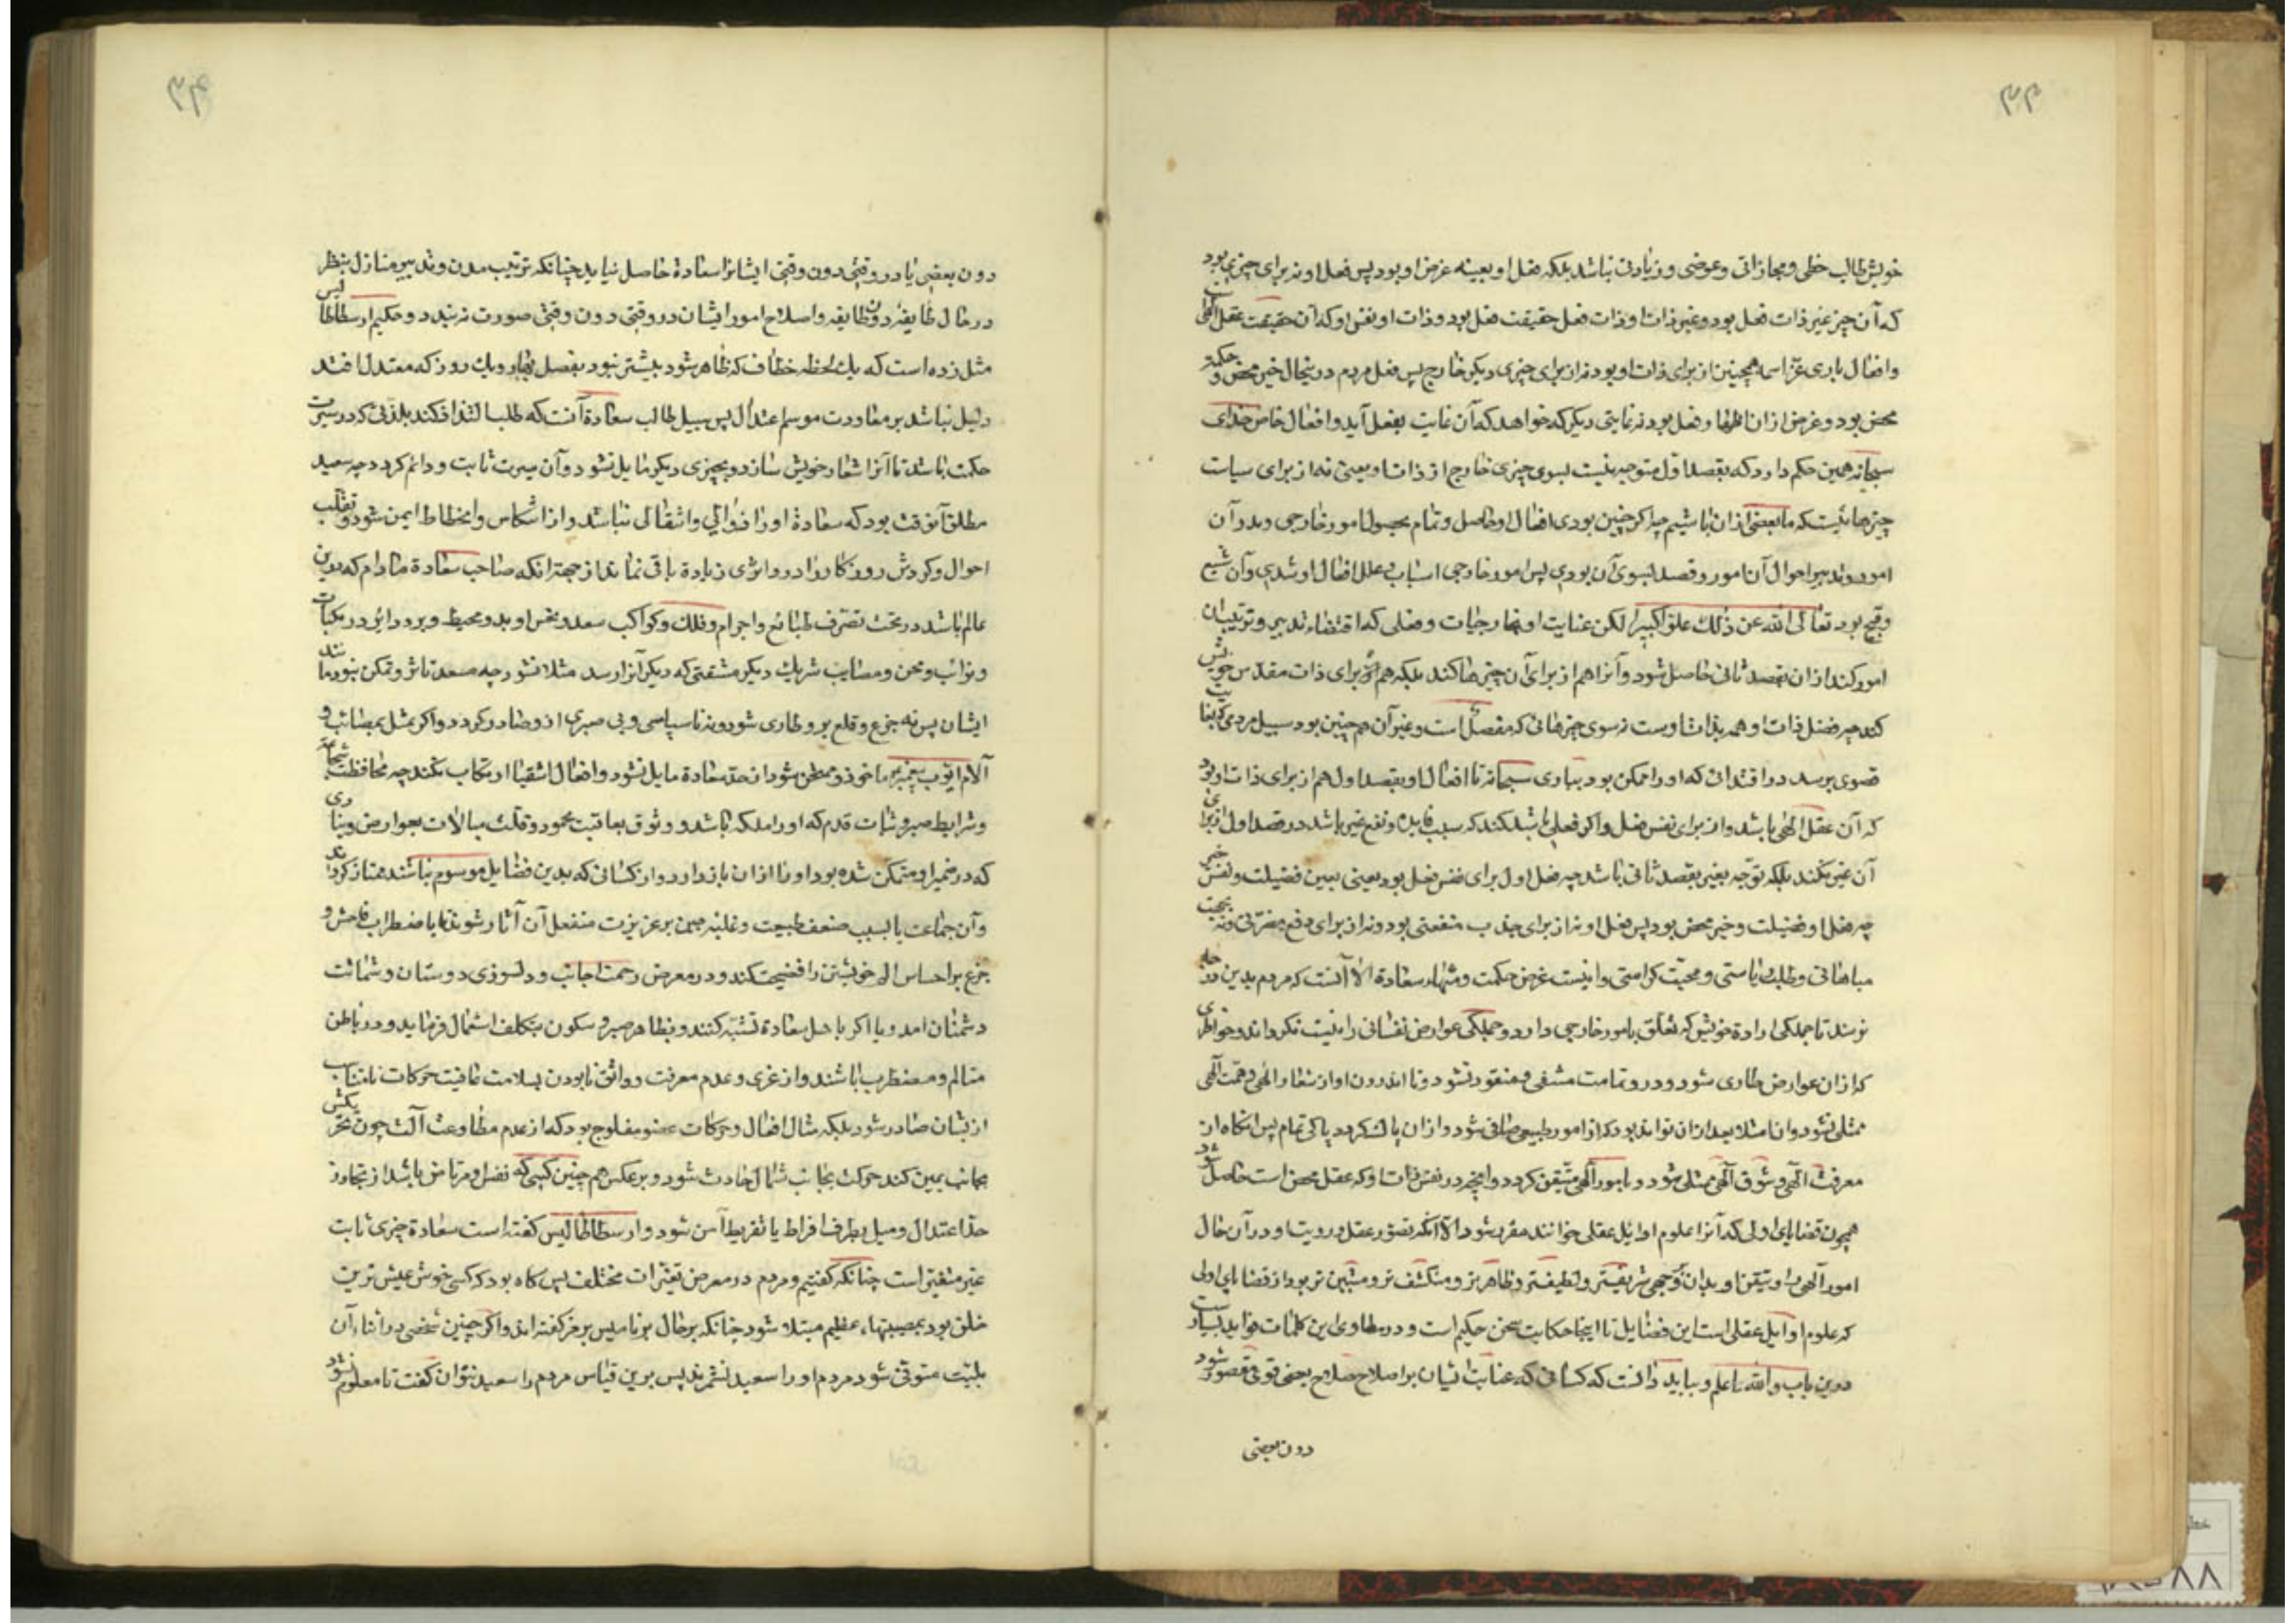 ۳۳
خویش طالب حظی و مجازاتی و عوضی و زیادتی نباشد بلکه فعل او بعینه غرض او بود پس فعل او نه برای چیزی بود
که آن چیز غیر ذات فعل بود و غیر ذات او و ذات فعل حقیقت فعل بود و ذات او نفس او که آن حقیقت عقل الهی است
و افعال باری عز اسمه همچنین از برای ذات او بود نه از برای چیزی دیگر خارج پس فعل مردم در اینحال خیر محض و حکمت
محض بود و غرض از ان اظهار فعل بود نه غایتی دیگر که خواهد که آن غایت بفعل آید و افعال خاص خدای
سبحانه همین حکم دارد که بقصد اول متوجه نیست بسوی چیزی خارج از ذات او یعنی نه از برای سیاست
چیزهائیست که ما بعضی از ان باشیم چه اگر چنین بودی افعال او حاصل و تمام بحصول امور خارجی و بدر آن
امور و تدبیر احوال آن امور و قصد بسوی آن بودی پس امور خارجی اسباب و علل افعال او شدی و آن شنیع
و قبیح بود تعالی الله عن ذلک علوا کبیرا لکن عنایت او بخارجیات و فعلی که اقتضاء تدبیر و ترتیب ان
امور کند از ان بقصد ثانی حاصل شود و آنرا هم از برای آن چیزها کند بلکه هم از برای ذات مقدس خویش
کند چه فضل ذات او هم بذات اوست نه سوی چیزهائی که مفضل است و غیر آن هم چنین بود سبیل مردمی که بغایت
قصوی برسد در اقتدائی که او را ممکن بود بباری سبحانه تا افعال او بقصد اول هم از برای ذات او بود
که آن عقل الهی باشد و از برای نفس فعل و اگر فعلی باشد کند که سبب فایده و نفع غیر باشد در قصد اول از برای
آن غیر نکند بلکه توجه بغیر بقصد ثانی باشد چه فعل اول برای نفس فعل بود یعنی بعین فضیلت و نفس خیر
چه فعل او فضیلت و خیر محض بود پس فعل او نه از برای جذب منفعتی بود و نه از برای دفع مضرتی و نه بجهت
مباهاتی و طلب ریاستی و محبت کرامتی و اینست غرض حکمت و منتهاء سعادة الا آنست که مردم بدین درجه
نرسند تا جملگی ارادة خویش که تعلق بامور خارجی دارد و جملگی عوارض نفسانی را نیست نگرداند و خواطری
که از ان عوارض طاری شود و در و تمامت منتفی و مفقود نشود و تا اندرون او از شعار الهی و همت الهی
ممتلی نشود و ان امتلا بعد از ان تواند بود که از امور طبیعی صافی شود و از ان پاک گردد پاکی تمام پس انگاه از
معرفت الهی و شوق الهی ممتلی شود و بامور الهی متیقن گردد و انچه در نفس ذات او که عقل محض است حاصل شود
همچون قضایای اولی که آنرا علوم اوایل عقلی خوانند مقرر شود الا آنکه تصور عقل و رویت او در آن حال
امور الهی را و تیقن او بدان بوجهی شریفتر و لطیفتر و ظاهرتر و منکشف تر و متبین تر بود از قضایای اولی
که علوم اوایل عقلی است این فضایل تا اینجا حکایت سخن حکیم است و در مطاوی این کلمات فواید بسیارست
درین باب والله اعلم و بباید دانست که کسانی که عنایت ایشان بر اصلاح بعضی قوی مقصور شود
دون بعضی
۳۴
دون بعضی یا در وقتی دون وقتی ایشانرا سعادة حاصل نیاید چنانکه ترتیب مدن و تدبیر منازل بنظر
در حال طایفه دون طایفه و اصلاح امور ایشان در وقتی دون وقتی صورت نبندد و حکیم ارسطاطالیس
مثل زده است که یک لحظه خطاف که ظاهر شود مبشر نبود بفصل بهار و یک روز که معتدل افتد
دلیل نباشد بر معاودت موسم اعتدال پس سبیل طالب سعادة آنست که طلب التذاذ کند بلذتی که در سیرت
حکمت باشد تا آنرا شعار خویش سازد و بچیزی دیگر مایل نشود و آن سیرت ثابت و دائم گردد چه سعید
مطلق آنوقت بود که سعادة او را زوالی و انتقالی نباشد و از انتکاس و انحطاط ایمن شود و تقلب
احوال و گردش روزگار را در و اثری زیادة باقی نماند از جهة انکه صاحب سعادة مادام که درین
عالم باشد در تحت تصرف طبائع و اجرام و فلک و کواکب سعد و نحس او بدو محیط و برو دایر و در نکبات
و نوائب و محن و مصایب شریک دیگر مشقتی که دیگر آنرا رسد مثلا نشود چه مستعد تاثر و تمکن نبود مانند
ایشان پس نه جزع و قلع برو طاری شود و نه ناسپاسی و بی صبری ازو صادر گردد و اگر بمثل بمصائب و
آلام ایوب پیغمبر ماخوذ و ممتحن شود از حد سعادة مایل نشود و افعال اشقیا ارتکاب نکند چه محافظت شجاعة
و شرایط صبر و ثبات قدم که او را ملکه باشد و وثوق بعاقبت محمود و قلت مبالات بعوارض دنیاوی
که در ضمیر او متمکن شده بود او را از ان باز دارد و از کسانی که بدین فضایل موسوم نباشند ممتاز گرداند
و آن جماعت یا بسبب ضعف طبیعت و غلبه جبن بر غریزت منفعل آن آثار شوند تا باضطراب فاحش و
جزع بر احساس الم خویشتن را فضیحت کنند و در معرض رحمت اجانب و دلسوزی دوستان و شماتت
دشمنان امد و یا اگر باهل سعادة تشبه کنند و بظاهر صبر و سکون بتکلف استمال فرماید و در باطن
متالم و مضطرب باشند و از غری و عدم معرفت و واثق نابودن بسلامت عاقبت حرکات نامتناسب
از یشان صادر شود بلکه مثال افعال و حرکات عضو مفلوج بود که از عدم مطاوعت آلت چون تحریکش
بجانب یمین کند حرکت بجانب شمال حادث شود و برعکس هم چنین کسی که نفس او مرتاض باشد از تجاوز
حد اعتدال و میل بطرف افراط یا تفریط آمن شود و ارسطاطالیس گفته است سعادة چیزی ثابت
غیر متغیر است چنانکه گفتیم و مردم در معرض تغیرات مختلف پس گاه بود که کسی خوش عیش ترین
خلق بود بمصیبتهاء عظیم مبتلا شود چنانکه بر حال برنامیس بر مز گفته اند و اگر چنین شخصی در اثناء آن
بلیت متوفی شود مردم او را سعید نشمرند پس برین قیاس مردم را سعید نتوان گفت تا معلوم نشود